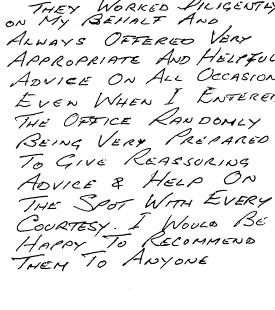 THEY WORKED DILIGENTLY
ON MY BEHALF AND
ALWAYS OFFERED VERY
APPROPRIATE AND HELPFUL
ADVICE ON ALL OCCASION
EVEN WHEN I ENTERE
THE OFFICE RANDOMLY
BEING VERY PREPARED
TO GIVE REASSURING
ADVICE & HELP ON
THE SPOT WITH EVERY
COURTESY. I WOULD BE
HAPPY TO RECOMMEND
THEM TO ANYONE